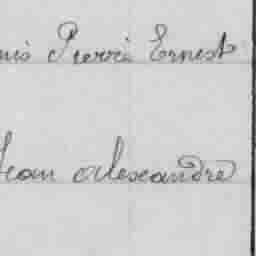 Pierre Ernest
Jean Alexandre